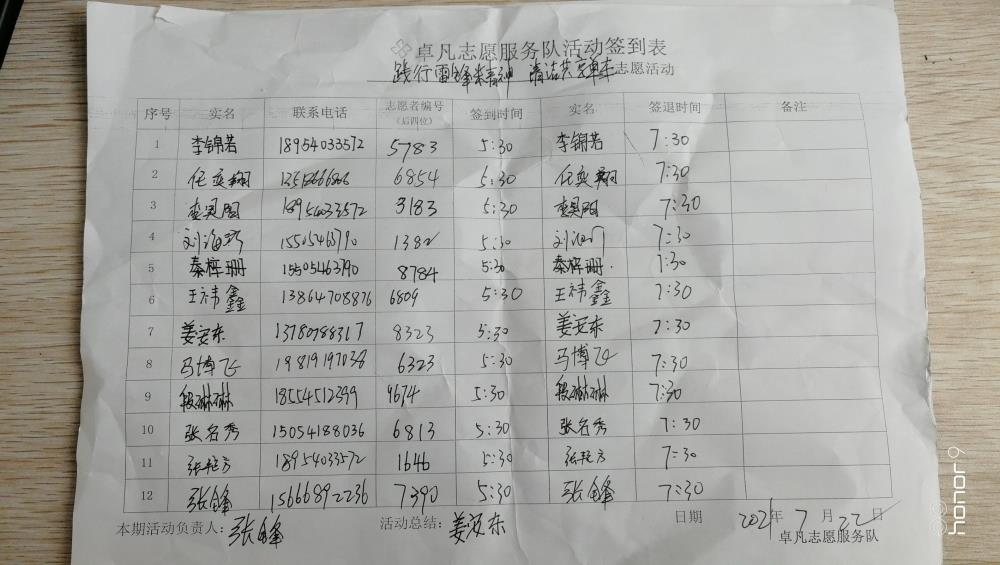 卓凡志愿服务队活动签到表
践行雷锋精神 清洁共享单车志愿活动
序号 实名 联系电话 志愿者编号（后四位） 签到时间 实名 签退时间 备注
1 李锦若 18954033572 5783 5:30 李锦若 7:30
2 任奕翔 6854 5:30 任奕翔 7:30
3 18954033572 3183 5:30 7:30
4 15505463790 1382 5:30 7:30
5 秦梓珊 15505463790 8784 5:30 秦梓珊 7:30
6 王祎鑫 13864708876 6809 5:30 王祎鑫 7:30
7 姜安东 13780788317 8323 5:30 姜安东 7:30
8 马博飞 19819197038 6323 5:30 马博飞 7:30
9 段琳琳 18554512399 9674 5:30 段琳琳 7:30
10 张名秀 15054188036 6813 5:30 张名秀 7:30
11 18954033572 1646 5:30 7:30
12 张峰 15666892236 7390 5:30 张峰 7:30
本期活动负责人：张峰 活动总结：姜安东 日期 2021年7月22日
卓凡志愿服务队
honor 9